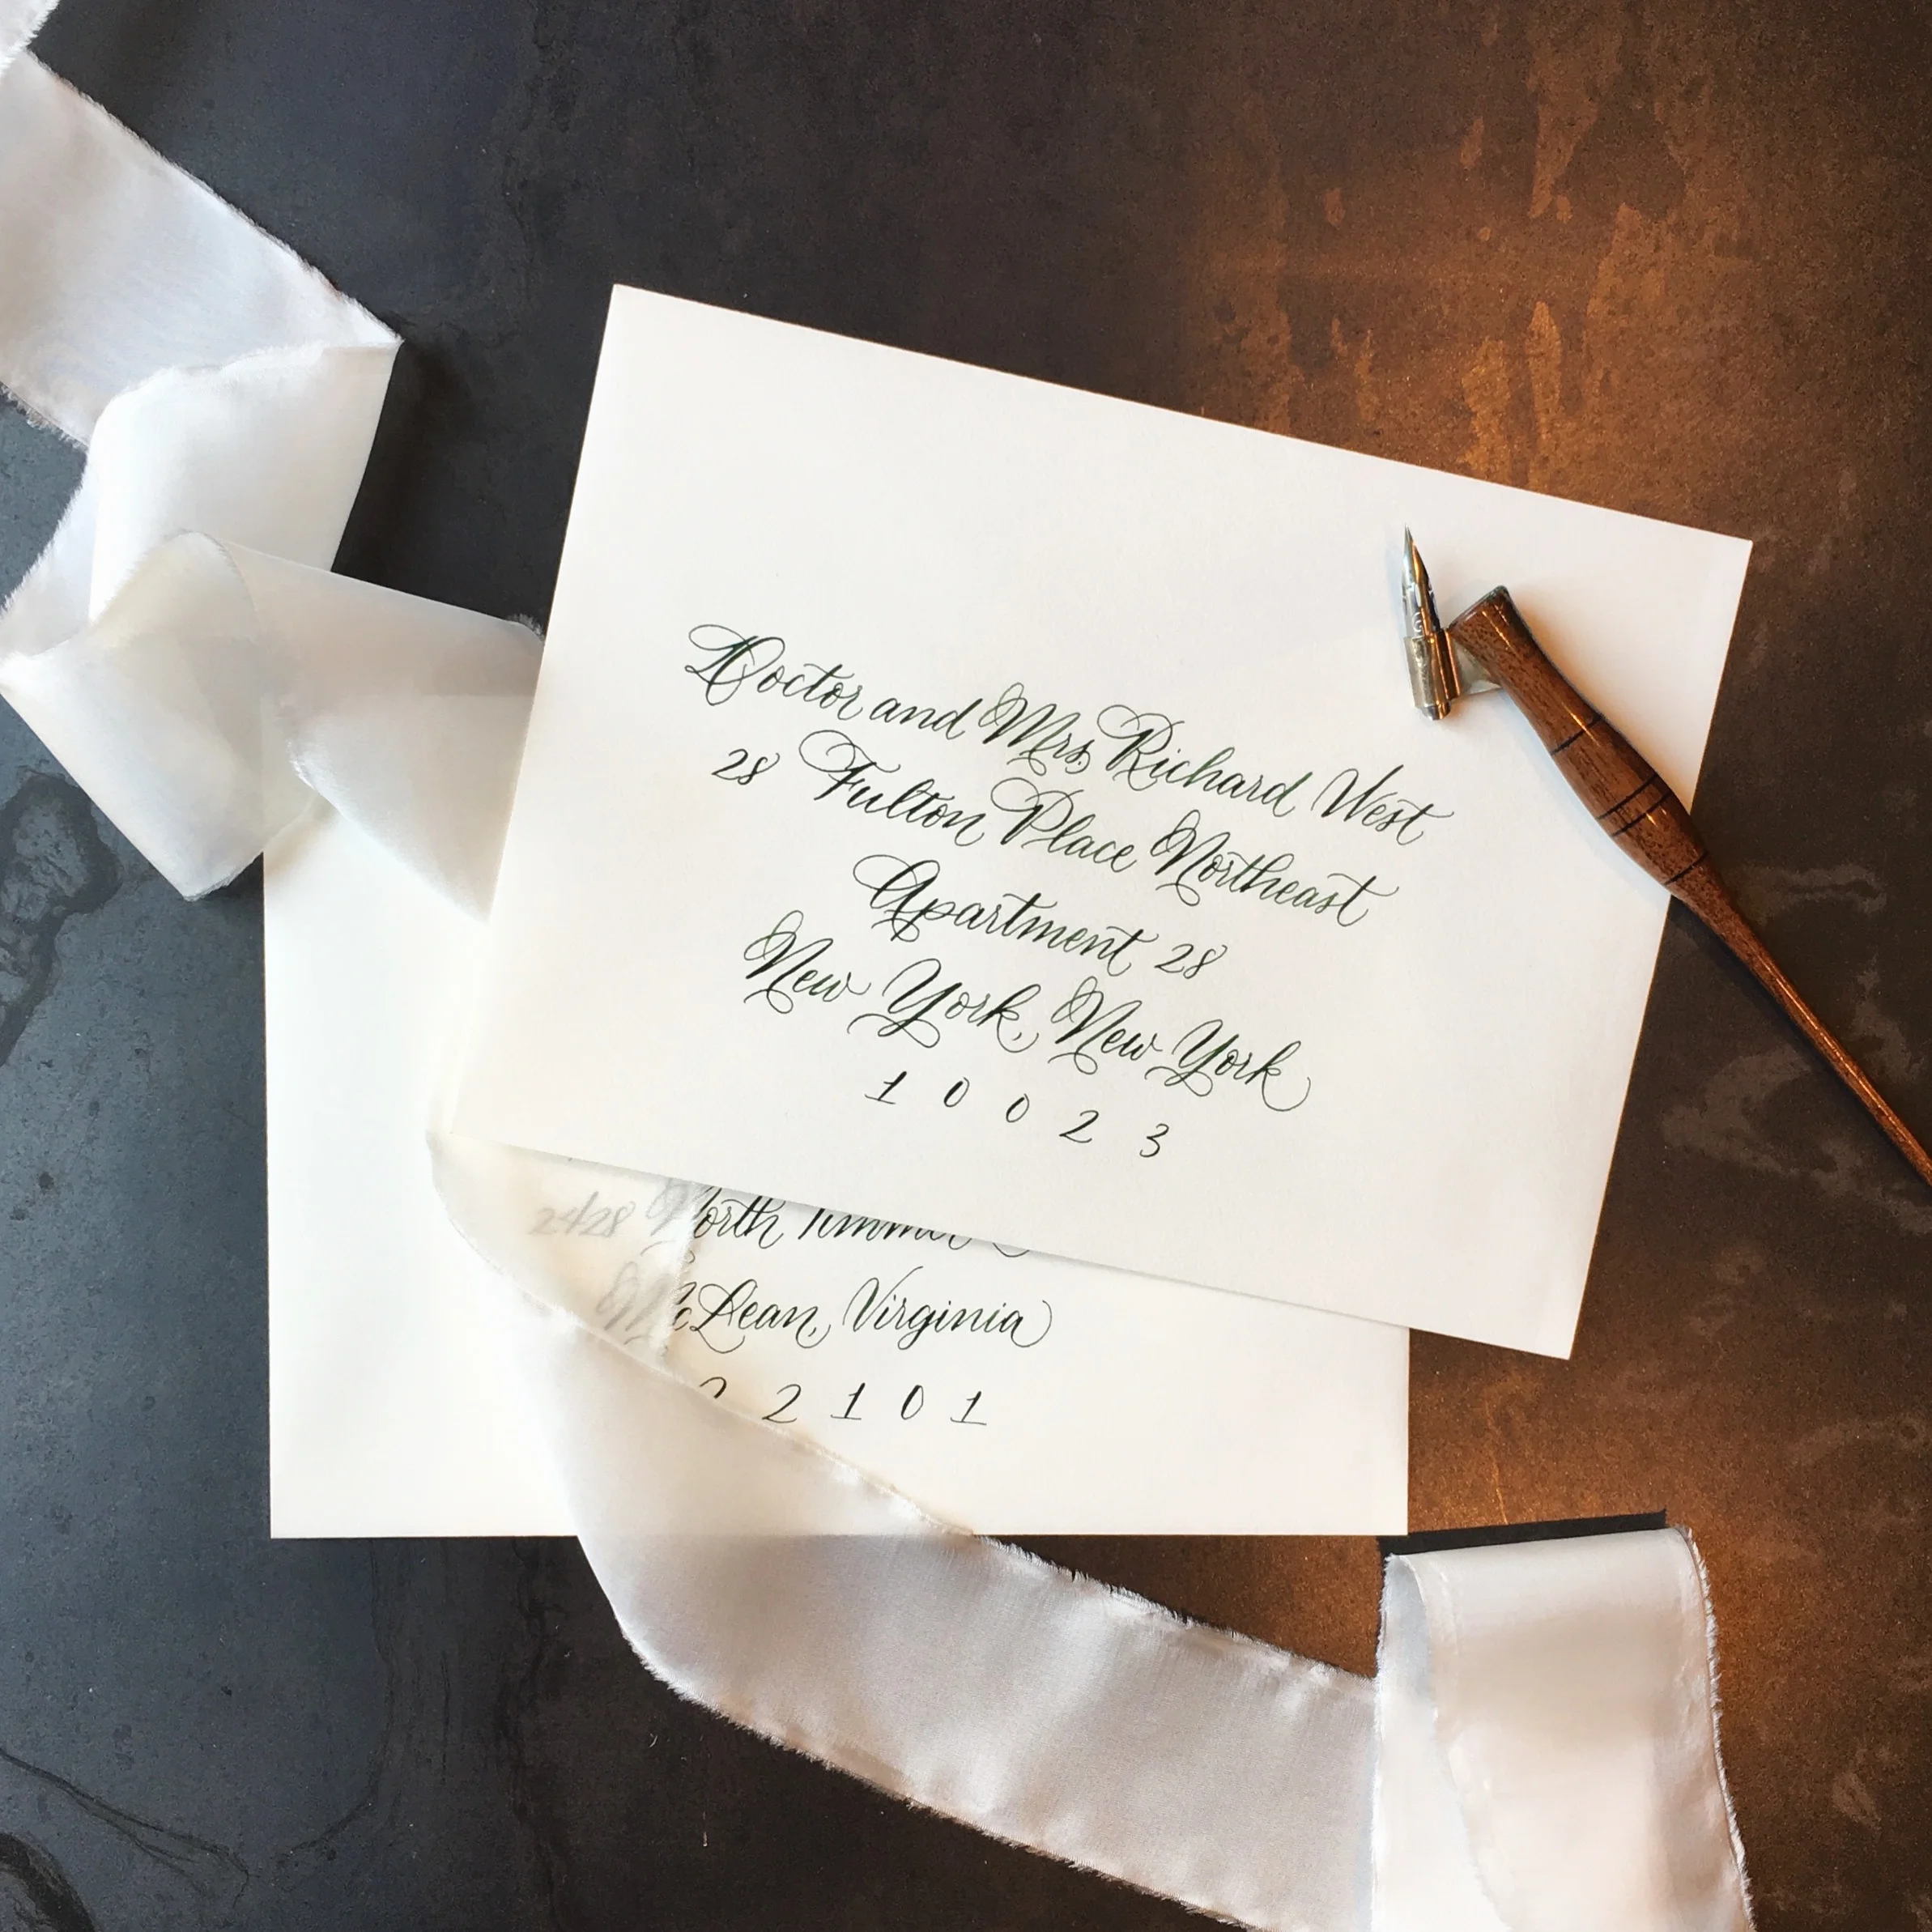 Doctor and Mrs. Richard West
28 Fulton Place Northeast
Apartment 28
New York, New York
1 0 0 2 3
2428 North
McLean, Virginia
2 2 1 0 1